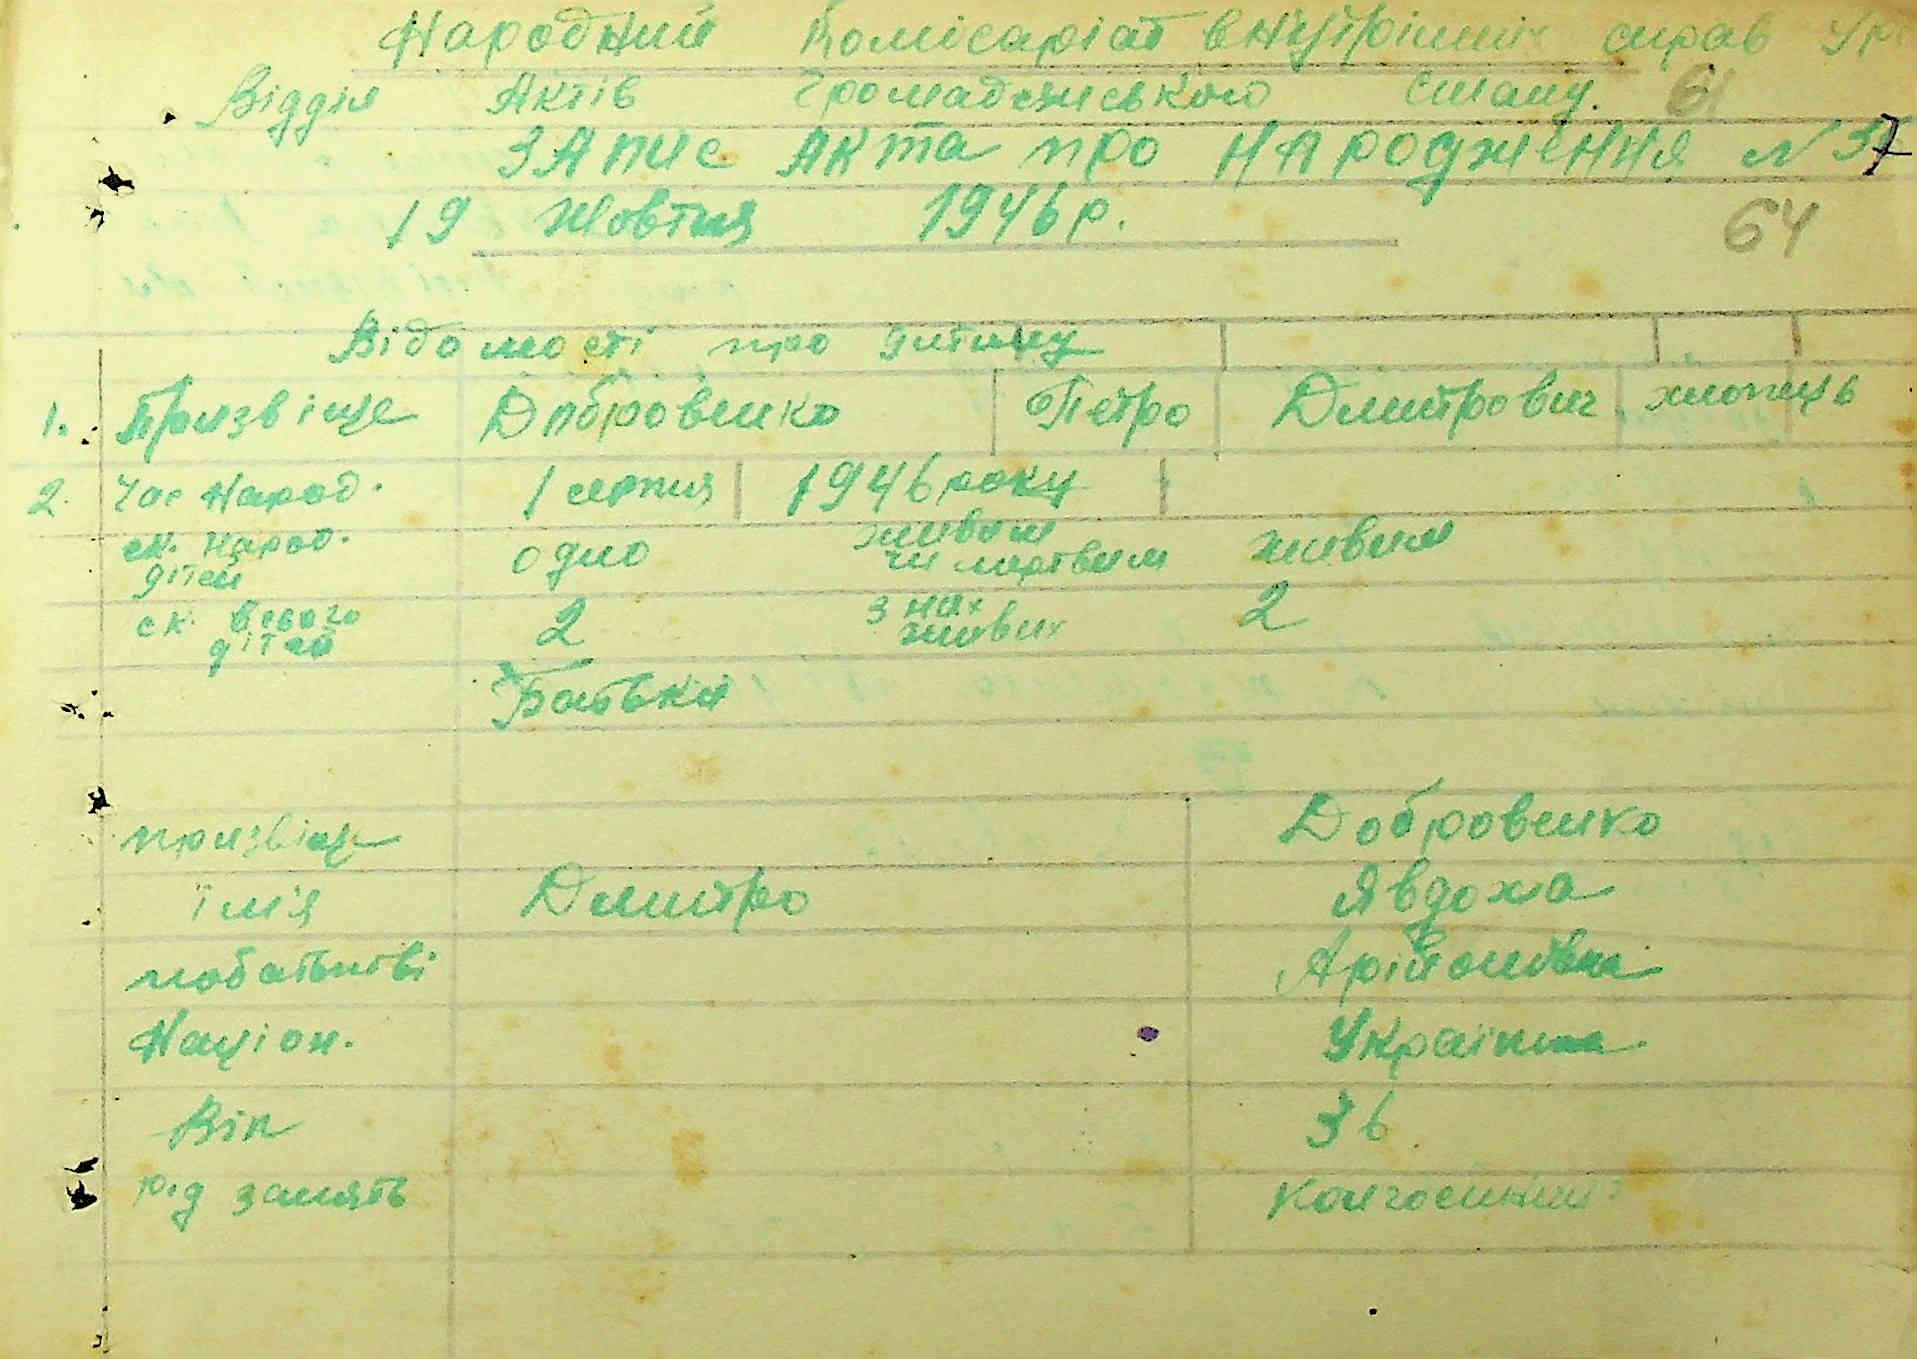 Народний Комісаріат внутрішніх справ УРС
Відділ Актів Громадянського Стану. 61
ЗАПИС АКТА про НАРОДЖЕННЯ N 37
19 Жовтня 1946 р.
64
Відомості про дитину
1. Призвіще Добровенко Петро Дмитрович хлопець
2. Час Народ. 1 серпня 1946 року
ск. народ. дітей одно живим чи мертвим живим
ск. всього дітей 2 з них живих 2
Батьки
призвіще Добровенко
ім'я Дмитро Явдоха
побатькові Арійонівна
Націон. Українка
Вік 36
рід занять Колгоспниця